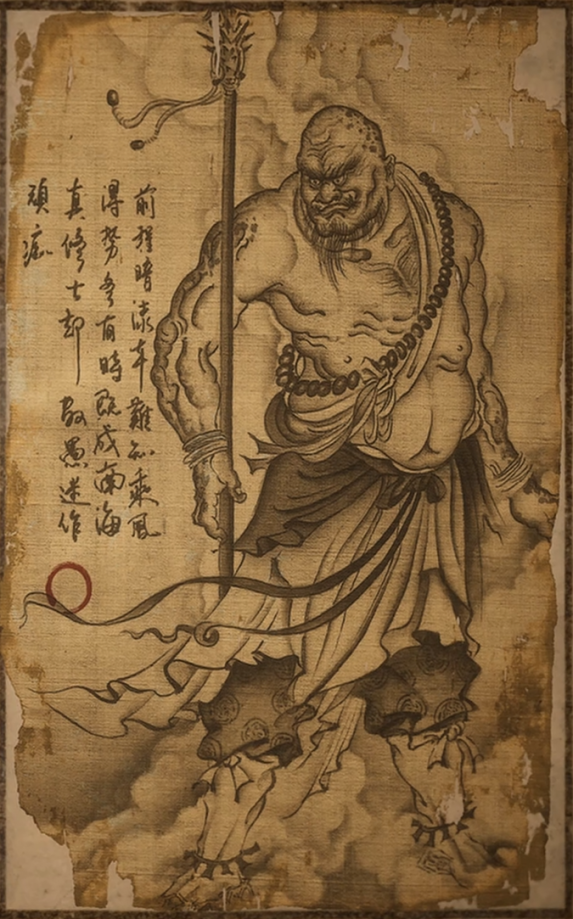 前程暗淡本難知乘風
得勢多有時既成南海
真修士却敬愚迷作
頑痴